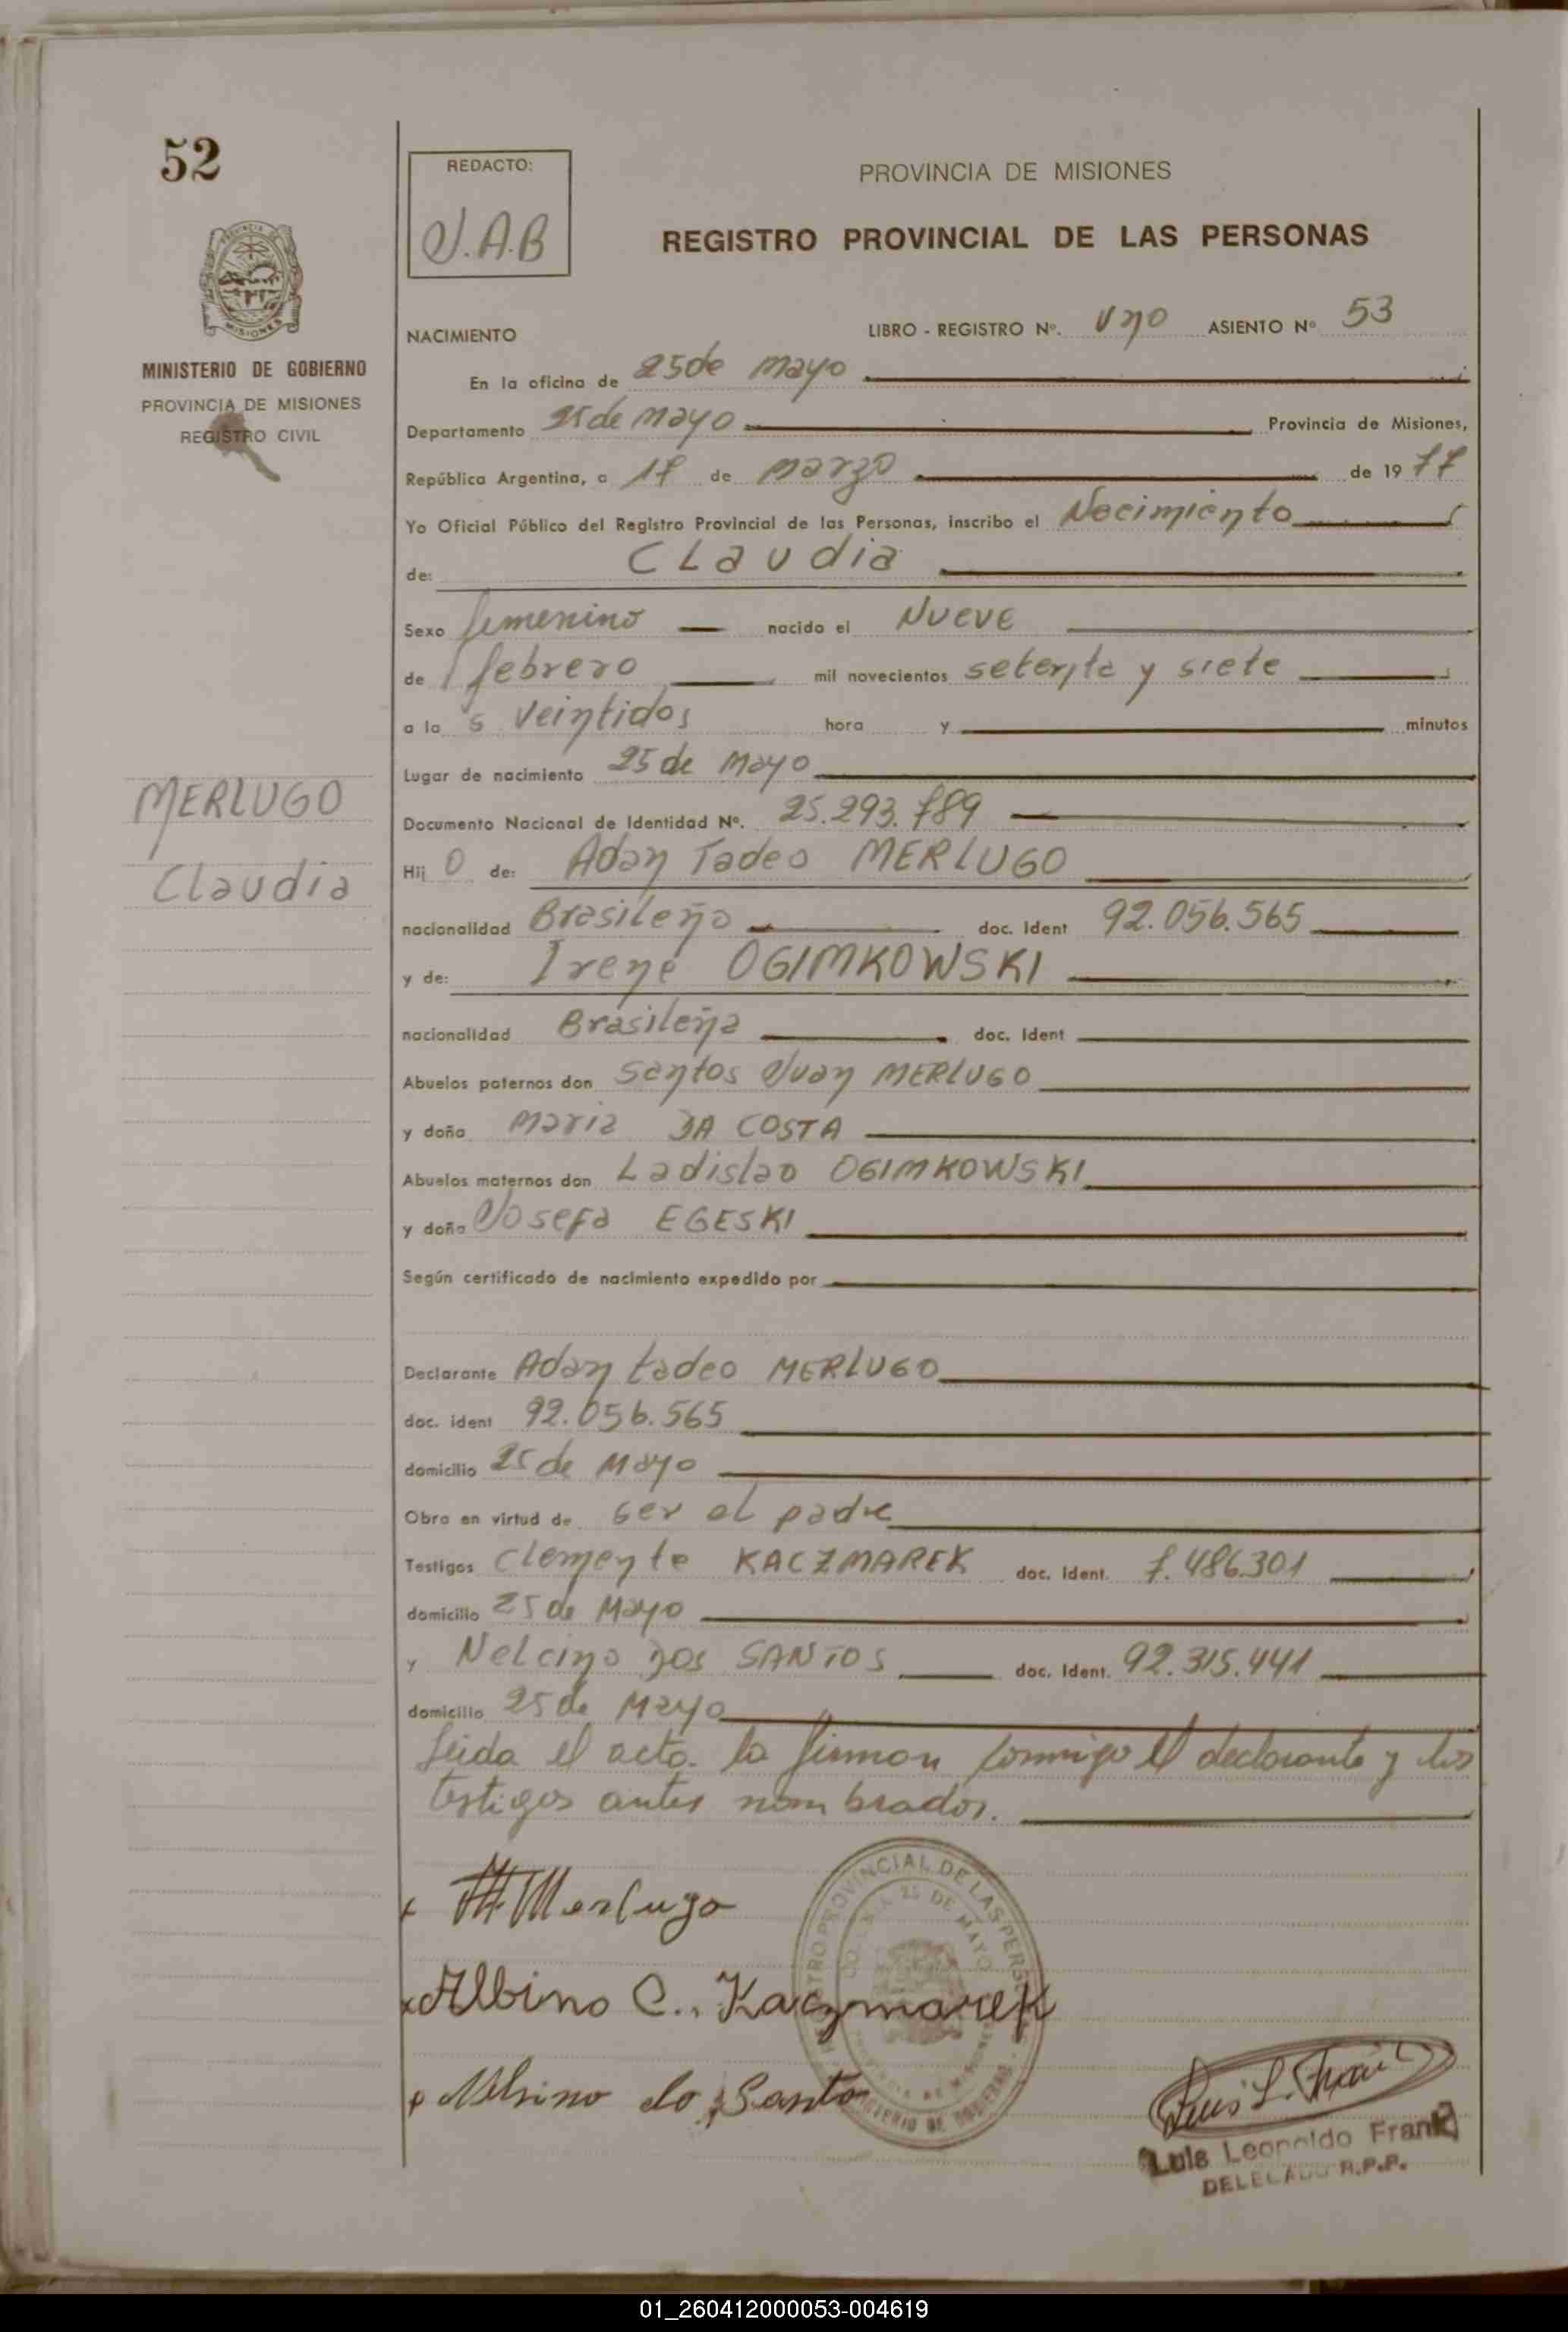 52
REDACTO:
J.A.B
PROVINCIA DE MISIONES
REGISTRO PROVINCIAL DE LAS PERSONAS
MINISTERIO DE GOBIERNO
PROVINCIA DE MISIONES
REGISTRO CIVIL
MISIONES
NACIMIENTO LIBRO - REGISTRO Nº. Uno ASIENTO Nº 53
En la oficina de 25 de Mayo
Departamento 25 de Mayo Provincia de Misiones,
República Argentina, a 17 de Marzo de 19 77
Yo Oficial Público del Registro Provincial de las Personas, inscribo el Nacimiento
de: CLaudia
Sexo femenino nacido el Nueve
de febrero mil novecientos setenta y siete
a la s veintidos hora y minutos
Lugar de nacimiento 25 de Mayo
MERLUGO
Claudia
Documento Nacional de Identidad Nº. 25.293.789
Hij o de: Adan Tadeo MERLUGO
nacionalidad Brasileño doc. Ident 92.056.565
y de: Irene OGIMKOWSKI
nacionalidad Brasileña doc. Ident
Abuelos paternos don Santos Juan MERLUGO
y doña Maria DA COSTA
Abuelos maternos don Ladislao OGIMKOWSKI
y doña Josefa EGESKI
Según certificado de nacimiento expedido por
Declarante Adan tadeo MERLUGO
doc. ident 92.056.565
domicilio 25 de Mayo
Obra en virtud de ser el padre
Testigos Clemente KACZMAREK doc. Ident. 7.486.301
domicilio 25 de Mayo
y Nelcino DOS SANTOS doc. Ident. 92.315.441
domicilio 25 de Mayo
Leida el acta la firman conmigo el declarante y los
testigos antes nombrados.
Merlugo
Albino C. Kaczmarek
do Santo
Luis L. Frank
Luis Leopoldo Frank
DELEGADO R.P.P.
01_260412000053-004619